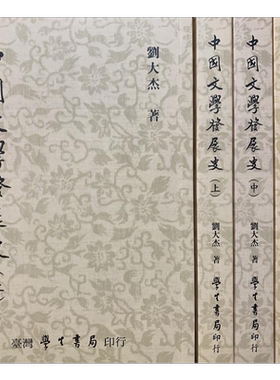 劉大杰 著
臺灣 學生書局 印行
中國文學發展史(上)
劉大杰 著
學生書局 印行
中國文學發展史(中)
劉大杰 著
學生書局 印行